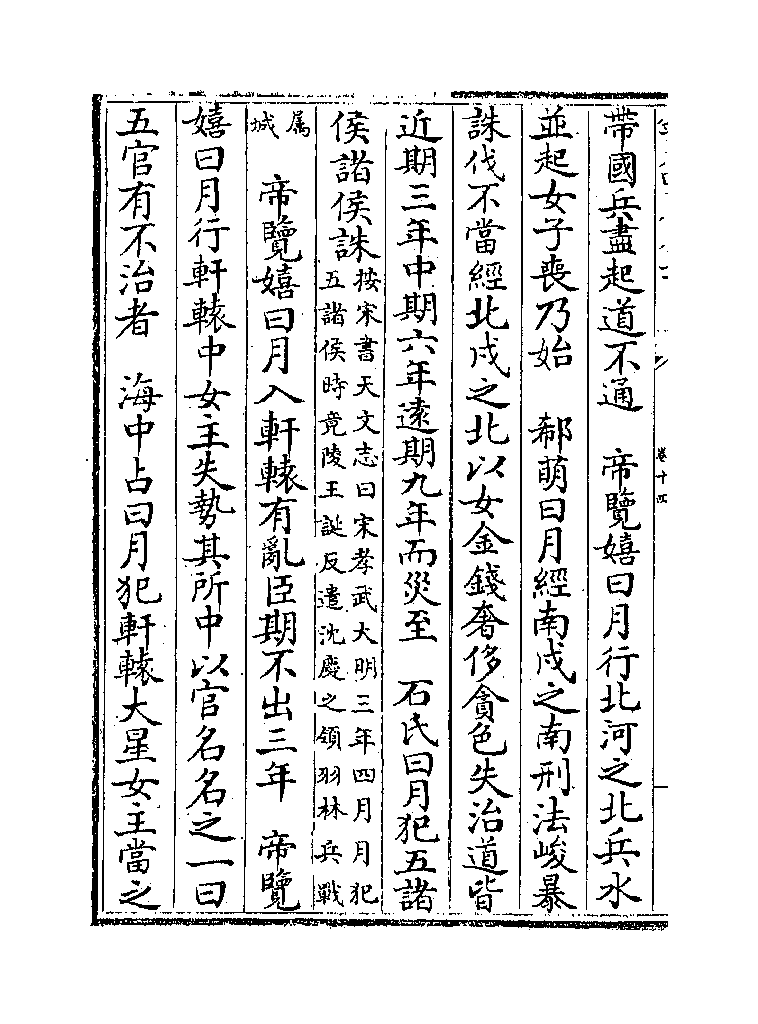 卷十四
帶國兵盡起道不通　帝覽嬉曰月行北河之北兵水
並起女子喪乃始　郗萌曰月經南戍之南刑法峻暴
誅伐不當經北戍之北以女金錢奢侈貪色失治道皆
近期三年中期六年遠期九年而災至　石氏曰月犯五諸
侯諸侯誅
按宋書天文志曰宋孝武大明三年四月月犯
五諸侯時竟陵王誕反遣沈慶之領羽林兵戰
属
城
帝覽嬉曰月入軒轅有亂臣期不出三年　帝覽
嬉曰月行軒轅中女主失勢其所中以官名名之一曰
五官有不治者　海中占曰月犯軒轅大星女主當之